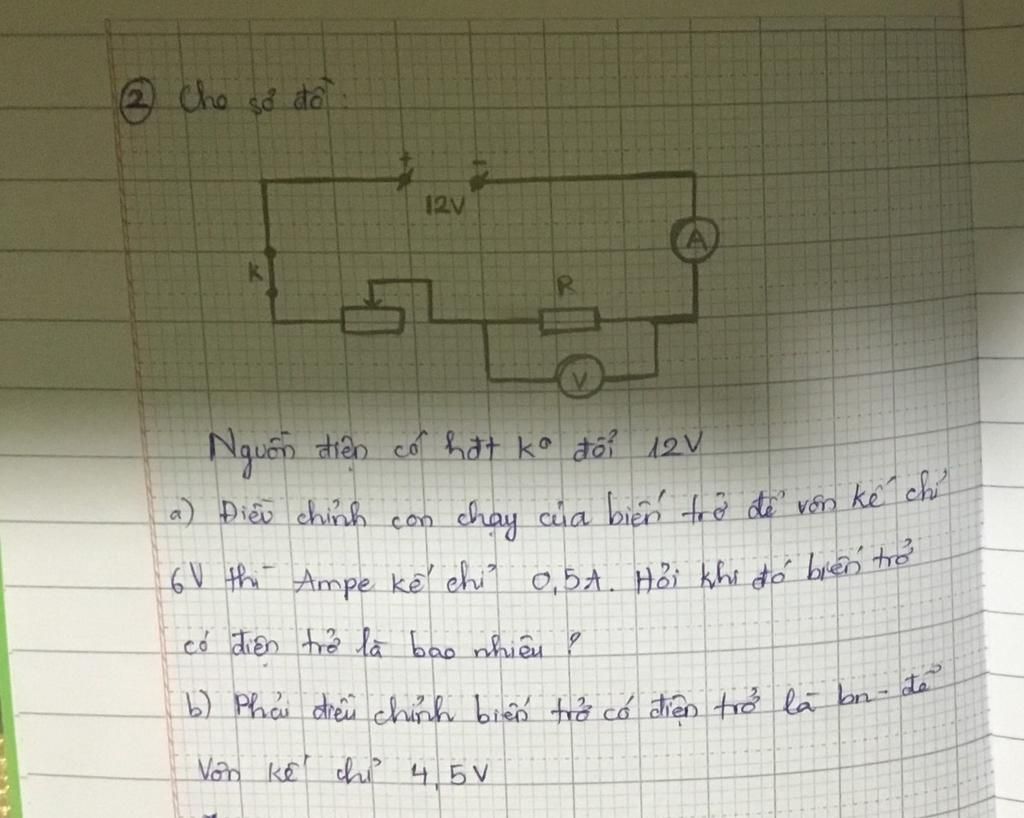 ② Cho sơ đồ:
+ -
12V
A
K
R
V
Nguồn điện có hđt kº đổi 12V
a) Điều chỉnh con chạy của biến trở để vôn kế chỉ
6V thì Ampe kế chỉ 0,5A. Hỏi khi đó biến trở
có điện trở là bao nhiêu?
b) Phải điều chỉnh biến trở có điện trở là bn - để
Vôn kế chỉ 4,5V